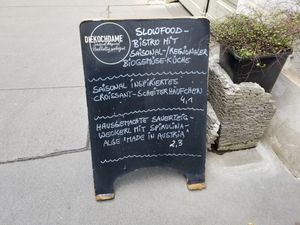 DIEKOCHDAME
SLOWFOOD-
BISTRO MIT
SAISONAL-/REGIONALER
BIOGEMÜSE-KÜCHE
SAISONAL INSPIRIERTES
CROISSANT-SCHEITERHÄUFCHEN
4,1
HAUSGEMACHTE SAUERTEIG-
WECKERL MIT SPIRULINA-
ALGE "MADE IN AUSTRIA"
2,3